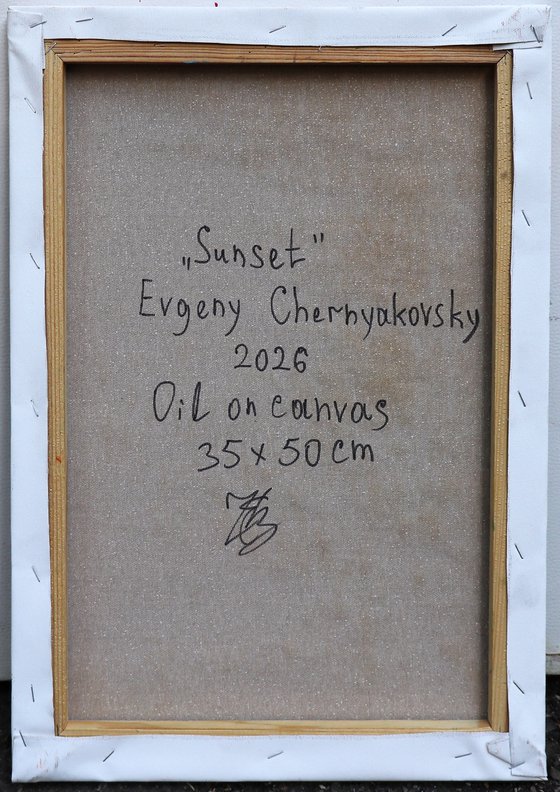 „Sunset"
Evgeny Chernyakovsky
2026
Oil on canvas
35 x 50 cm